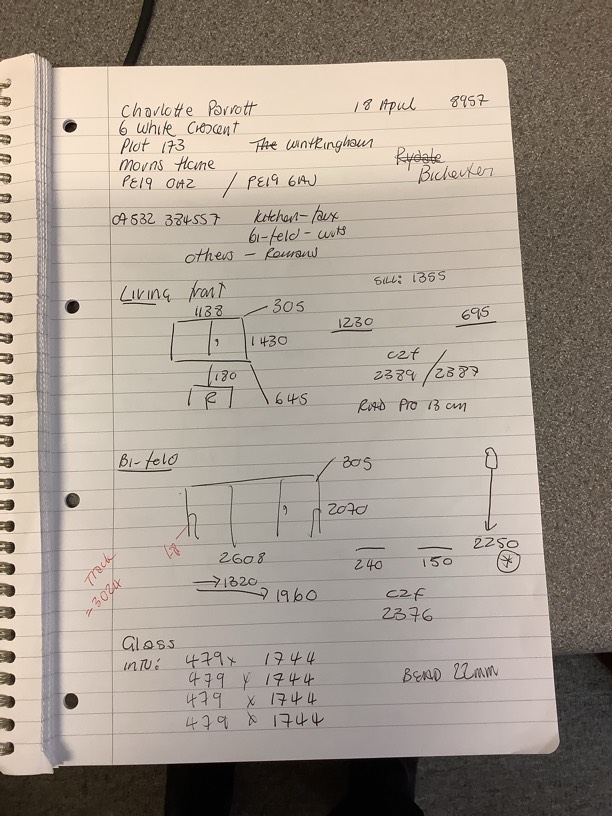 Charlotte Parrott 18 April 8957
6 White Crescent
Plot 173 The Wintringham
Morris Home Rydale
Bichester
PE19 0AZ / PE19 6AN
07532 384557 kitchen - faux
bi-fold - wuts
others - Romans
SILL: 1355
Living front
1138 305
1230 695
1430
c2f
2389 / 2387
180
R 645
RAD Pro 13 cm
Bi-fold 305
2070
18
2608
240 150 2250
*
Track
= 3024
1320
1960 c2f
2376
Glass
INTU: 479 x 1744
479 x 1744 BEAD 22mm
479 x 1744
479 x 1744